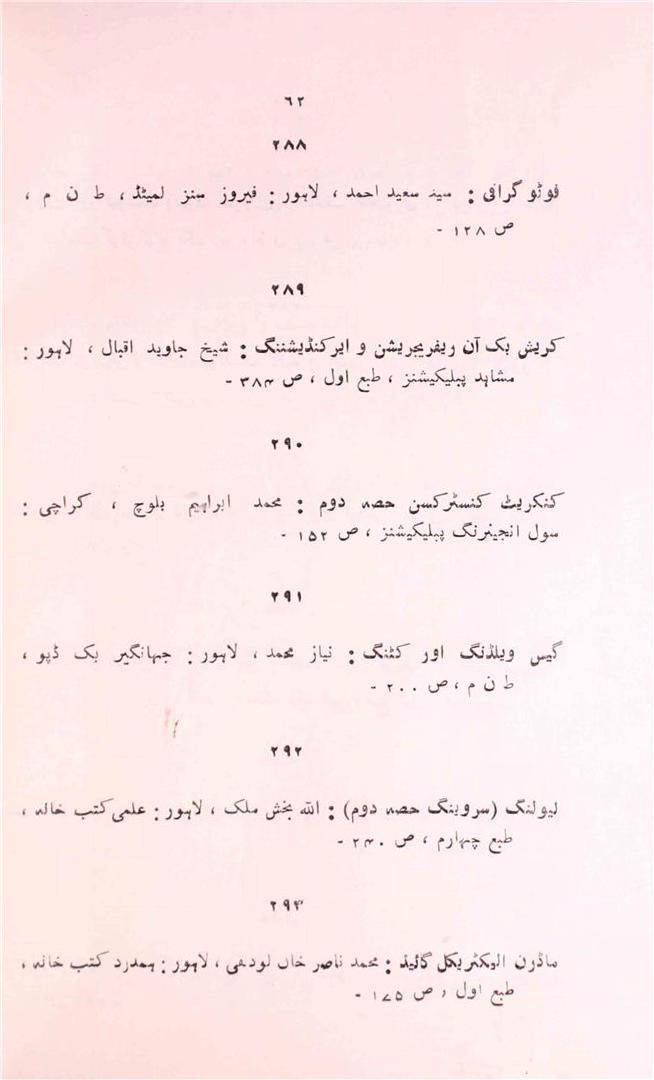 ۶۲
۲۸۸
فوٹو گرافی : سید سعید احمد ، لاہور : فیروز سنز لمیٹڈ ، ط ن م ،
ص ۱۲۸ -
۲۸۹
کریش بک آن ریفریجریشن و ایرکنڈیشننگ : شیخ جاوید اقبال ، لاہور :
مشاہد پبلیکیشنز ، طبع اول ، ص ۳۸۴ -
۲۹۰
کنکریٹ کنسٹرکسن حصہ دوم : محمد ابراہیم بلوچ ، کراچی :
سول انجینرنگ پبلیکیشنز ، ص ۱۵۲ -
۲۹۱
گیس ویلڈنگ اور کٹنگ : نیاز محمد ، لاہور : جہانگیر بک ڈپو ،
ط ن م ، ص ۲۰۰ -
۲۹۲
لیولنگ (سروینگ حصہ دوم) : اللہ بخش ملک ، لاہور : علمی کتب خانہ ،
طبع چہارم ، ص ۲۴۰ -
۲۹۳
ماڈرن الیکٹریکل گائیڈ : محمد ناصر خاں لودھی ، لاہور : ہمدرد کتب خانہ ،
طبع اول ، ص ۱۷۵ -